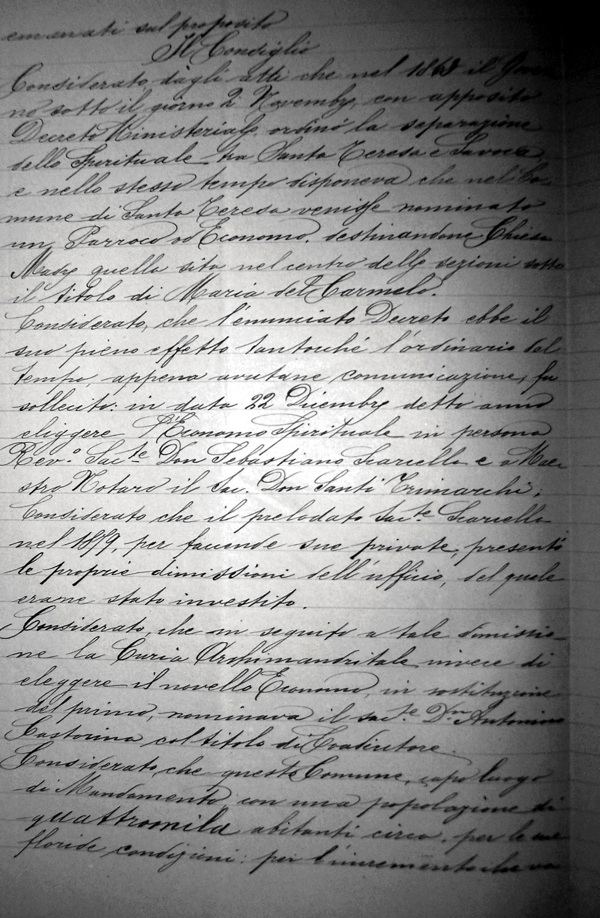 emanati sul proposito
Il Consiglio
Considerato dagli atti che nel 1868 il Gover
no sotto il giorno 2 Novembre, con apposito
Decreto Ministeriale ordinò la separazione
dello Spirituale tra Santa Teresa e Savoca
e nello stesso tempo disponeva che nel Co
mune di Santa Teresa venisse nominato
un Parroco od Economo, destinandone Chiesa
Madre quella sita nel centro delle sezioni sotto
il titolo di Maria del Carmelo.
Considerato, che l'enunciato Decreto ebbe il
suo pieno effetto tantochè l'ordinario del
tempo, appena avutane comunicazione, fu
sollecito: in data 22 Dicembre detto anno
eliggere Economo Spirituale in persona
Rev.o Sac.te Don Sebastiano Scarcella e a Mae
stro Notaro il Sac. Don Santi Trimarchi;
Considerato che il prelodato Sac.te Scarcella
nel 1879, per facende sue private, presentò
le proprie dimissioni dell'ufficio, del quale
erane stato investito.
Considerato, che in seguito a tale dimissio-
ne la Curia Archimandritale invece di
eleggere il novello Economo, in sostituzione
del primo, nominava il sac.te D.n Antonino
Castorina col titolo di Coadiutore.
Considerato che questo Comune, capo luogo
di Mandamento con una popolazione di
quattromila abitanti circa, per le sue
floride condizioni: per l'incremento che va